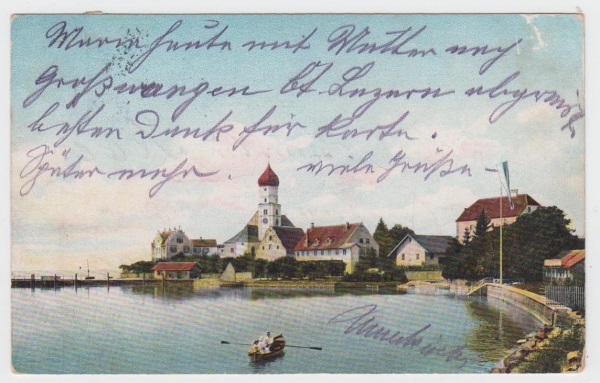 Marie heute mit Mutter nach
Großwangen Ct. Luzern abgereist
besten Dank für Karte.
Später mehr. viele Grüße –